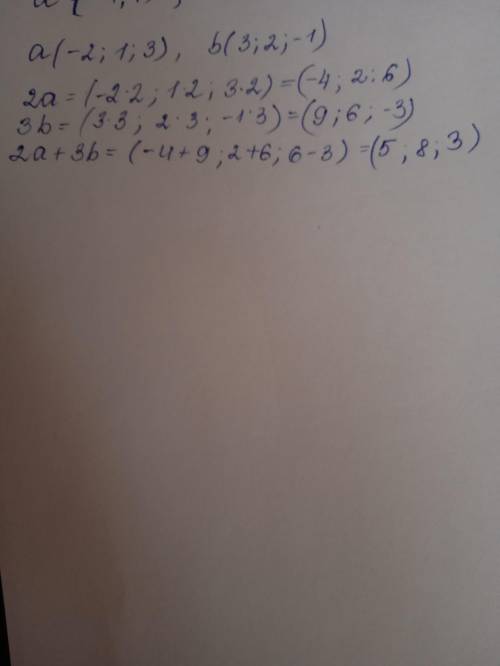 a(-2; 1; 3), b(3; 2; -1)
2a = (-2·2; 1·2; 3·2) = (-4; 2; 6)
3b = (3·3; 2·3; -1·3) = (9; 6; -3)
2a + 3b = (-4+9; 2+6; 6-3) = (5; 8; 3)